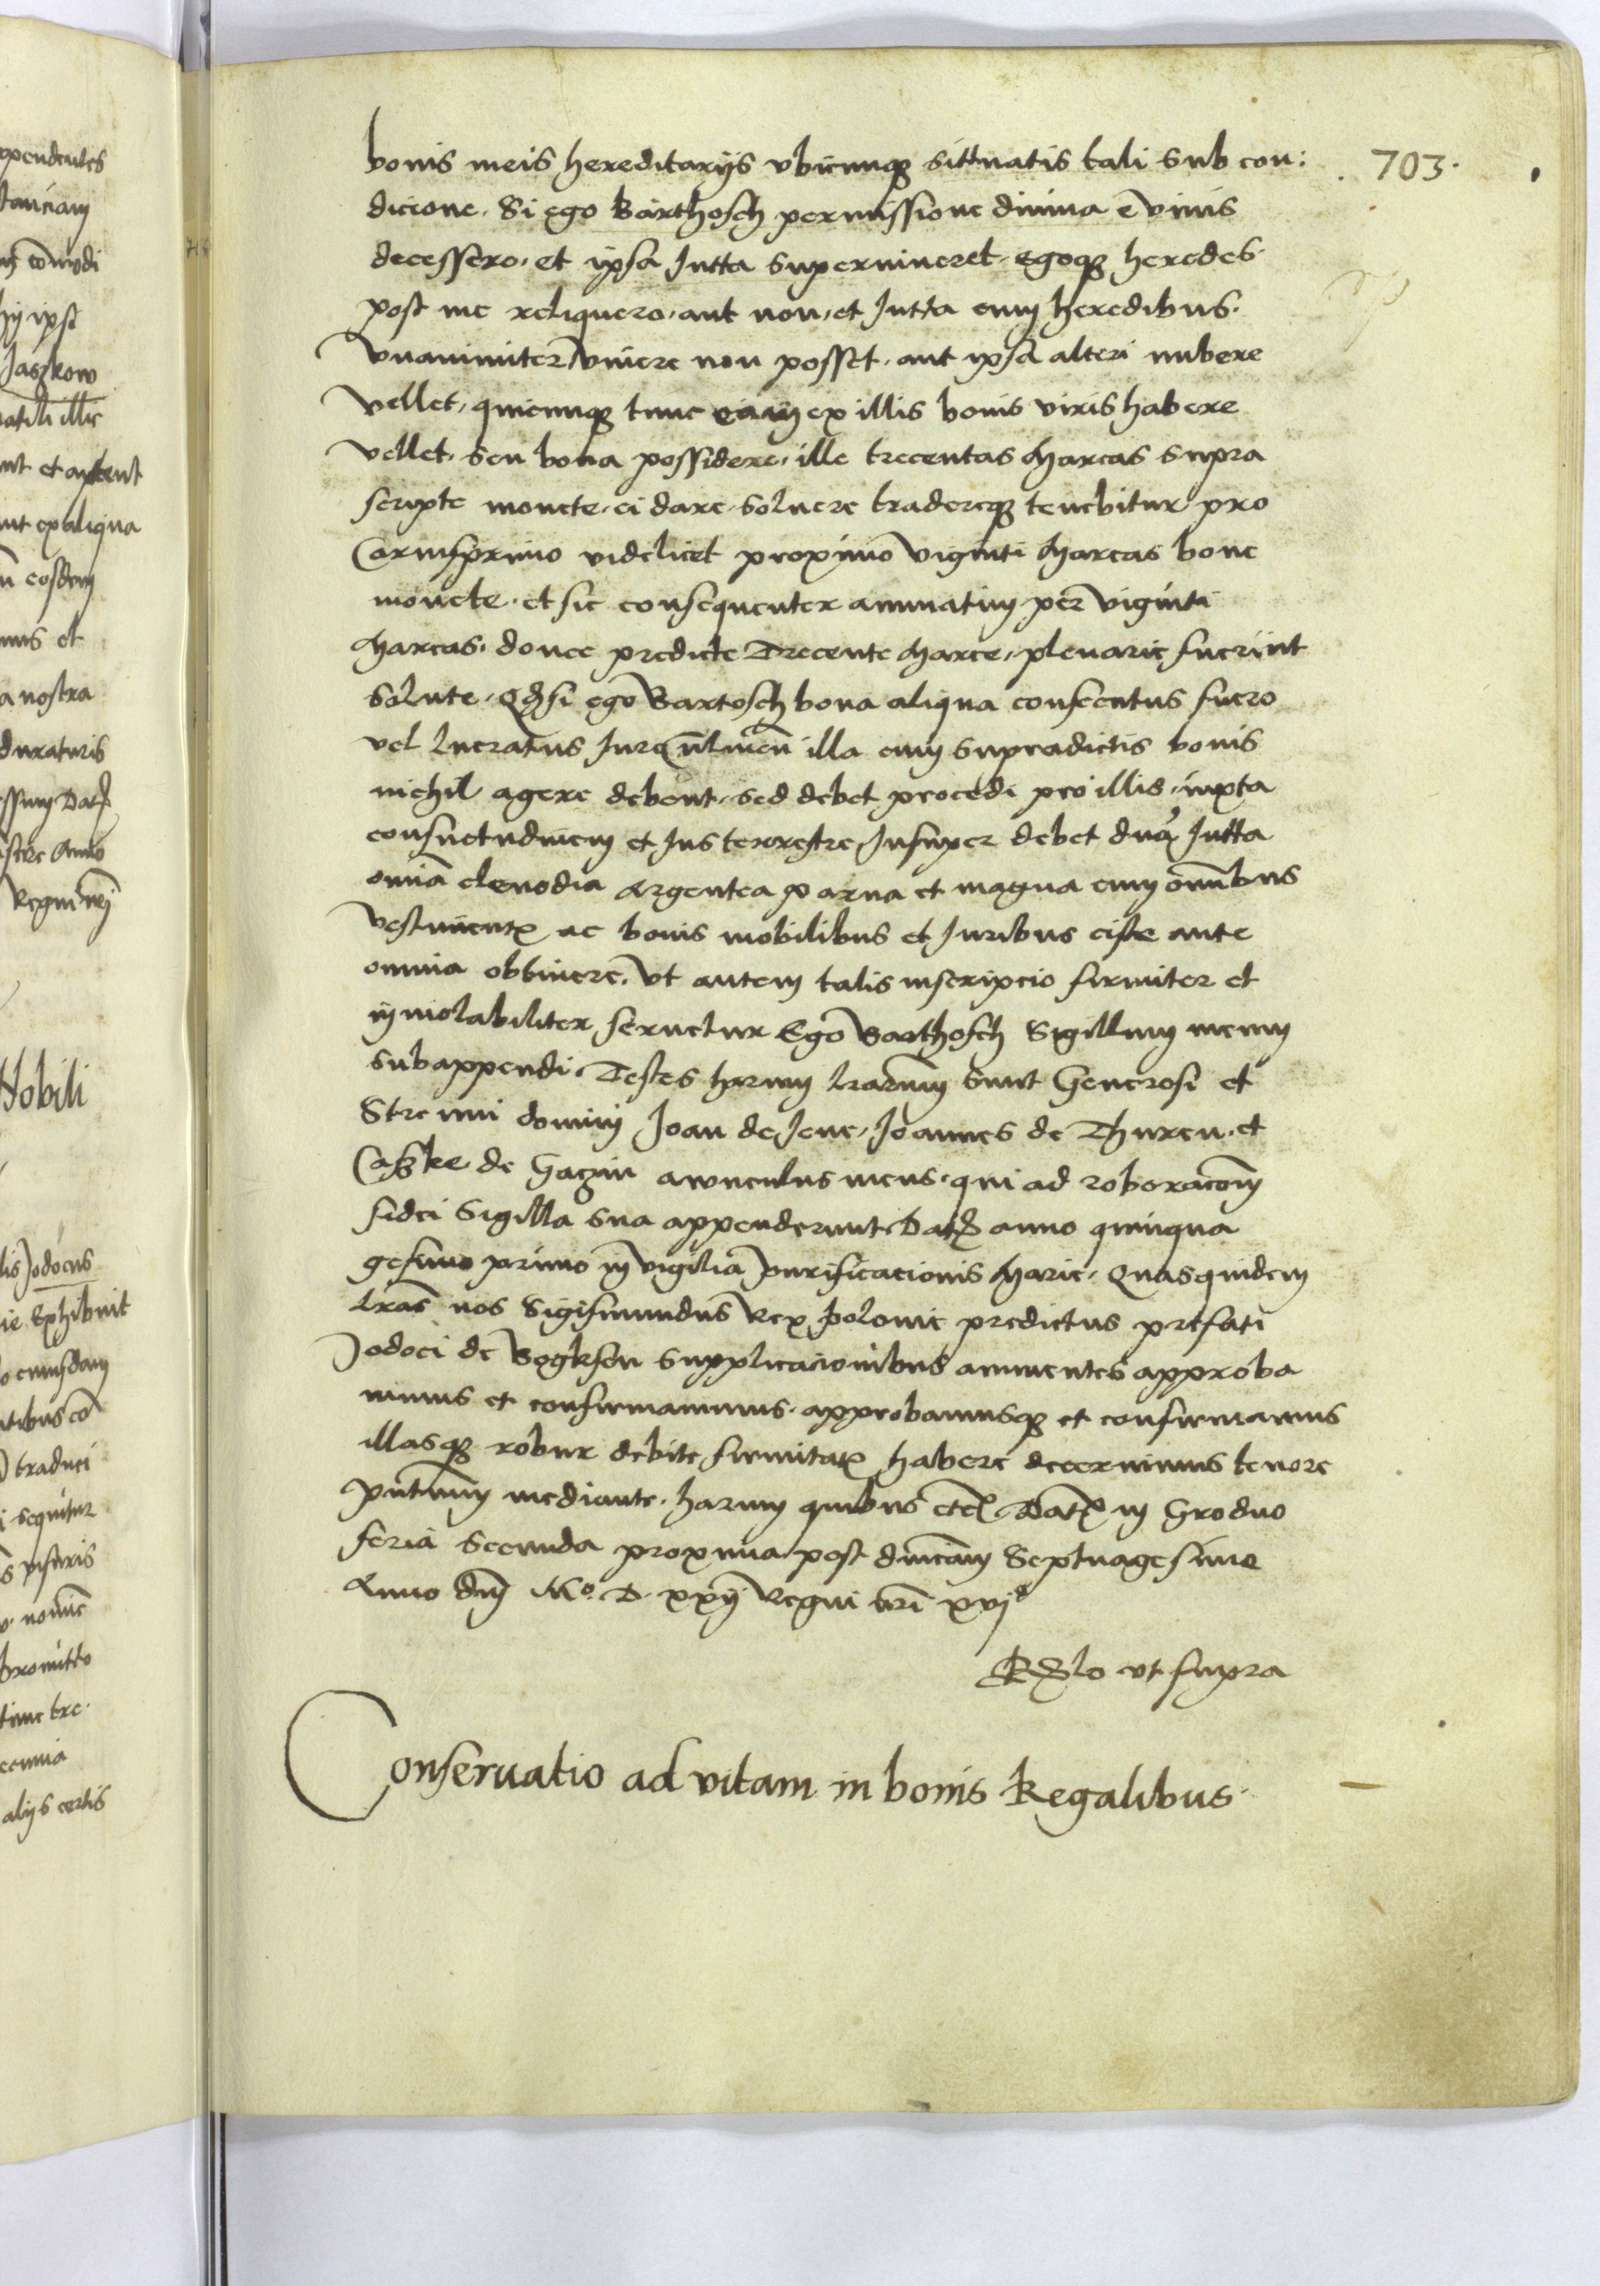 703.
bonis meis hereditarijs vbicunqʒ sittuatis tali sub con:
dicione. Si ego Barthosch permissione diuina e viuis
decessero. et ipsa Jutta superuiueret. Egoqʒ heredes.
post me reliquero. aut non. et Jutta cum heredibus.
vnanimiter viuere non posset. aut ipsa alteri nubere
vellet. quicunqʒ tunc ex illis bonis viris habere
vellet. seu bona possidere. ille trecentas Marcas supra
scripte monete. ei dare. soluere tradereqʒ tenebitur pro
Carnispriuio videlicet proximo viginti Marcas bone
monete. et sic consequenter annuatim per viginti
Marcas. donec predicte Trecente Marce. plenarie fuerint
solute. Qd si ego Bartosch bona aliqua consecutus fuero
vel lucratus Jure illa cum supradictis bonis
nichil agere debent. sed debet procedi pro illis. iuxta
consuetudinem et Jus terrestre Insuper debet dna Jutta
omnia clenodia Argentea parua et magna cum omnibus
vestimentis ac bonis mobilibus et Juribus ciste ante
omnia obtinere. Vt autem talis inscripcio firmiter et
inuiolabiliter seruetur Ego Barthosch Sigillum meum
subappendi. Testes harum lrarum sunt Generosi et
Strenui domini Joan de Jene. Joannes de Thuren. et
Caske de Gagin awnculus meus. qui ad roboracom
fidei Sigilla sua appenderunt. Dat anno quinqua
gesimo primo in vigilia purificacionis Marie. Quasquidem
lras nos Sigismundus Rex Polonie predictus prefati
Jodoci de Bogksen supplicacionibus annuentes approba
uimus et confirmauimus. approbamusqʒ et confirmamus
illasqʒ robur debite firmitatis habere decernimus tenore
pntium mediante. harum quibus etc. Dat in Grodno
feria secunda proxima post dnicam Septuagesime
Anno dni Mo. D. xxij Regni nri xvio
Rlo vt supra
Conseruatio ad vitam in bonis Regalibus.